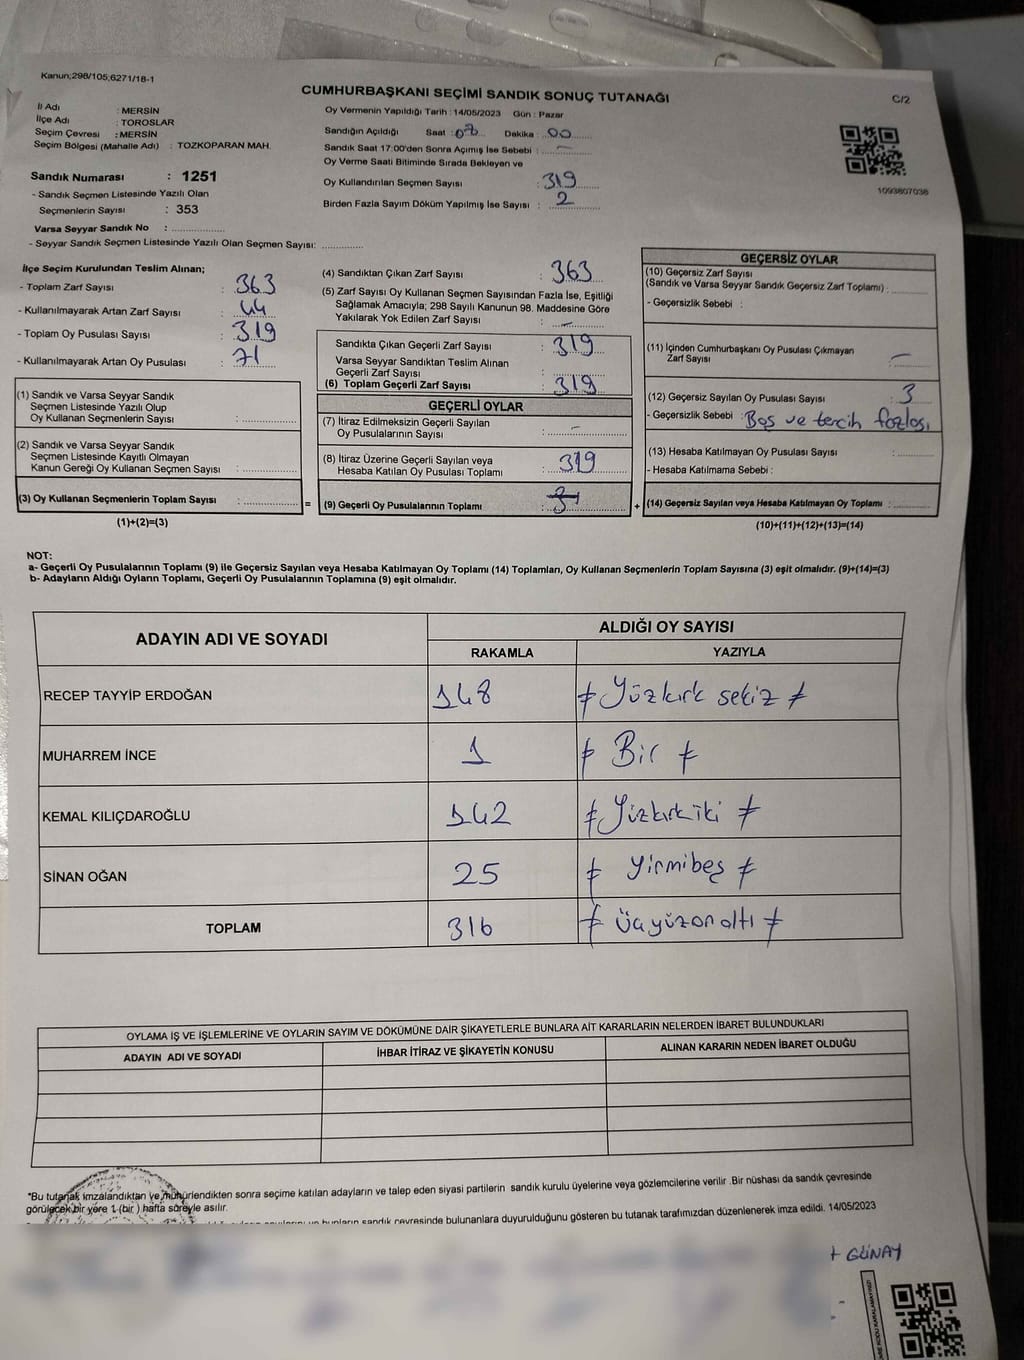 Kanun;298/105,6271/18-1
CUMHURBAŞKANI SEÇİMİ SANDIK SONUÇ TUTANAĞI
C/2
İl Adı : MERSİN
İlçe Adı : TOROSLAR
Seçim Çevresi : MERSİN
Seçim Bölgesi (Mahalle Adı) : TOZKOPARAN MAH.
Sandık Numarası : 1251
- Sandık Seçmen Listesinde Yazılı Olan
Seçmenlerin Sayısı : 353
Varsa Seyyar Sandık No :
- Seyyar Sandık Seçmen Listesinde Yazılı Olan Seçmen Sayısı:
Oy Vermenin Yapıldığı Tarih : 14/05/2023 Gün : Pazar
Sandığın Açıldığı Saat : Dakika : 00
Sandık Saat 17:00'den Sonra Açımış İse Sebebi : —
Oy Verme Saati Bitiminde Sırada Bekleyen ve
Oy Kullandırılan Seçmen Sayısı : 319
Birden Fazla Sayım Döküm Yapılmış İse Sayısı : 2
1093807036
İlçe Seçim Kurulundan Teslim Alınan;
- Toplam Zarf Sayısı : 363
- Kullanılmayarak Artan Zarf Sayısı : 44
- Toplam Oy Pusulası Sayısı : 319
- Kullanılmayarak Artan Oy Pusulası : 71
(1) Sandık ve Varsa Seyyar Sandık
Seçmen Listesinde Yazılı Olup
Oy Kullanan Seçmenlerin Sayısı :
(2) Sandık ve Varsa Seyyar Sandık
Seçmen Listesinde Kayıtlı Olmayan
Kanun Gereği Oy Kullanan Seçmen Sayısı :
(3) Oy Kullanan Seçmenlerin Toplam Sayısı : =
(1)+(2)=(3)
(4) Sandıktan Çıkan Zarf Sayısı : 363
(5) Zarf Sayısı Oy Kullanan Seçmen Sayısından Fazla İse, Eşitliği
Sağlamak Amacıyla; 298 Sayılı Kanunun 98. Maddesine Göre
Yakılarak Yok Edilen Zarf Sayısı : —
Sandıkta Çıkan Geçerli Zarf Sayısı : 319
Varsa Seyyar Sandıktan Teslim Alınan
Geçerli Zarf Sayısı :
(6) Toplam Geçerli Zarf Sayısı : 319
GEÇERLİ OYLAR
(7) İtiraz Edilmeksizin Geçerli Sayılan
Oy Pusulalarının Sayısı : -
(8) İtiraz Üzerine Geçerli Sayılan veya
Hesaba Katılan Oy Pusulası Toplamı : 319
(9) Geçerli Oy Pusulalarının Toplamı : +
GEÇERSİZ OYLAR
(10) Geçersiz Zarf Sayısı
(Sandık ve Varsa Seyyar Sandık Geçersiz Zarf Toplamı) :
- Geçersizlik Sebebi :
(11) İçinden Cumhurbaşkanı Oy Pusulası Çıkmayan
Zarf Sayısı : —
(12) Geçersiz Sayılan Oy Pusulası Sayısı : 3
- Geçersizlik Sebebi : Boş ve tercih fazlası
(13) Hesaba Katılmayan Oy Pusulası Sayısı :
- Hesaba Katılmama Sebebi :
(14) Geçersiz Sayılan veya Hesaba Katılmayan Oy Toplamı :
(10)+(11)+(12)+(13)=(14)
NOT:
a- Geçerli Oy Pusulalarının Toplamı (9) ile Geçersiz Sayılan veya Hesaba Katılmayan Oy Toplamı (14) Toplamları, Oy Kullanan Seçmenlerin Toplam Sayısına (3) eşit olmalıdır. (9)+(14)=(3)
b- Adayların Aldığı Oyların Toplamı, Geçerli Oy Pusulalarının Toplamına (9) eşit olmalıdır.
ADAYIN ADI VE SOYADI
ALDIĞI OY SAYISI
RAKAMLA YAZIYLA
RECEP TAYYİP ERDOĞAN 148 ≠ Yüzkırk sekiz ≠
MUHARREM İNCE 1 ≠ Bir ≠
KEMAL KILIÇDAROĞLU 142 ≠ Yüzkırkiki ≠
SİNAN OĞAN 25 ≠ Yirmibeş ≠
TOPLAM 316 ≠ Üçyüzonaltı ≠
OYLAMA İŞ VE İŞLEMLERİNE VE OYLARIN SAYIM VE DÖKÜMÜNE DAİR ŞİKAYETLERLE BUNLARA AİT KARARLARIN NELERDEN İBARET BULUNDUKLARI
ADAYIN ADI VE SOYADI İHBAR İTİRAZ VE ŞİKAYETİN KONUSU ALINAN KARARIN NEDEN İBARET OLDUĞU
*Bu tutanak imzalandıktan ve mühürlendikten sonra seçime katılan adayların ve talep eden siyasi partilerin sandık kurulu üyelerine veya gözlemcilerine verilir .Bir nüshası da sandık çevresinde
görülecek bir yere 1 (bir ) hafta süreyle asılır.
bunların sandık çevresinde bulunanlara duyurulduğunu gösteren bu tutanak tarafımızdan düzenlenerek imza edildi. 14/05/2023
GÜNAY